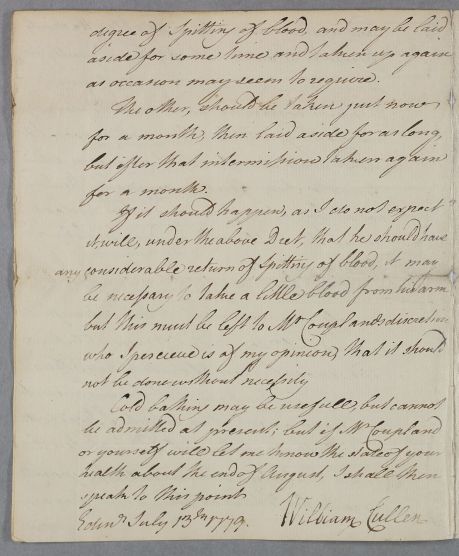 degree of Spitting of blood, and may be laid
aside for some time and taken up again
as occasion may seem to require.
The other, should be taken just now
for a month, then laid aside for as long
but after that intermission taken again
for a month.
If it should happen, as I do not expect
it will, under the above Diet, that he should have
any considerable return of Spitting of blood, it may
be necessary to take a little blood from his arm
but this must be left to Mr Coupland's discretion
who I perceive is of my opinion, that it should
not be done without necessity
Cold bathing may be usefull, but cannot
be admitted at present; but if Mr Coupland
or yourself will let me know the state of your
health about the end of August, I shall then
speak to this point
Edinr. July 13th 1779. William Cullen